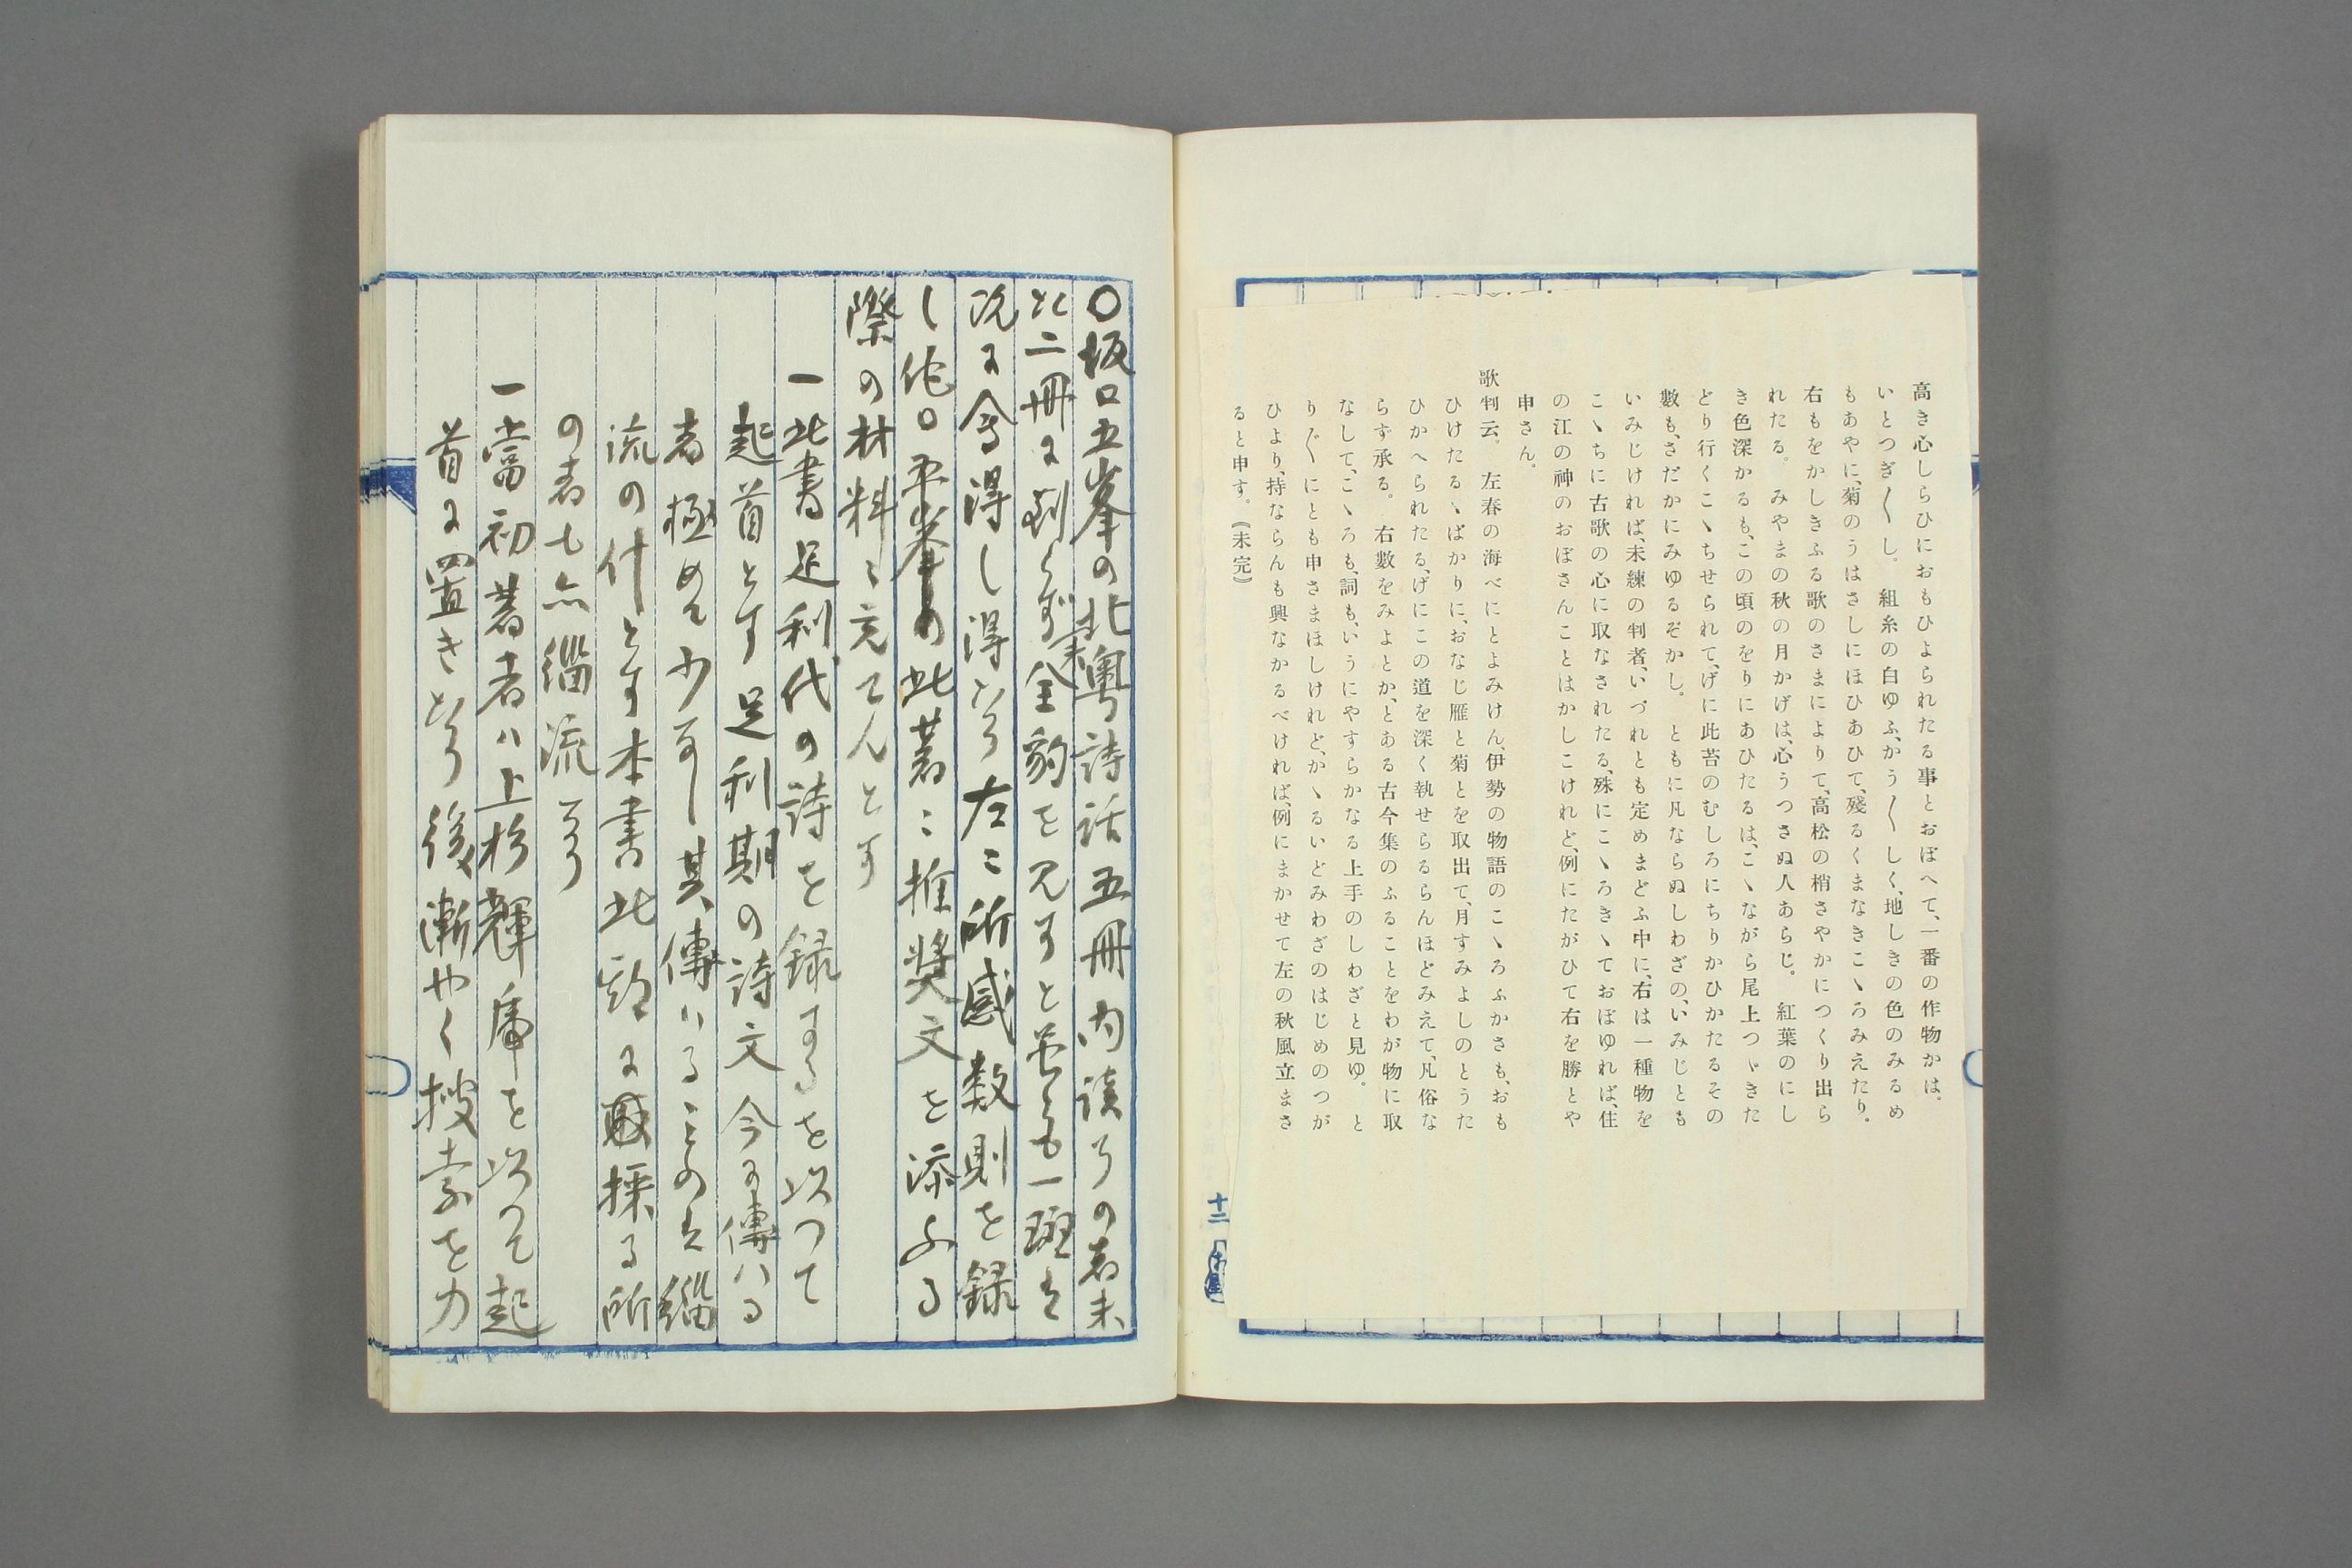 高き心しらひにおもひよられたる事とおぼへて、一番の作物かは、
いとつぎ〳〵し。　組糸の白ゆふ、かう〴〵しく、地しきの色のみるめ
もあやに、菊のうはさしにほひあひて、殘るくまなきこゝろみえたり。
右もをかしきふる歌のさまによりて、高松の梢さやかにつくり出ら
れたる。　みやまの秋の月かげは、心うつさぬ人あらじ。　紅葉のにし
き色深かるも、この頃のをりにあひたるは、こゝながら尾上つゞきた
どり行くこゝちせられて、げに此苔のむしろにちりかひかたるその
數も、さだかにみゆるぞかし。　ともに凡ならぬしわざの、いみじとも
いみじければ、未練の判者、いづれとも定めまどふ中に、右は一種物を
こゝちに古歌の心に取なされたる、殊にこゝろきゝておぼゆれば、住
の江の神のおぼさんことはかしこけれど、例にたがひて右を勝とや
申さん。
歌判云。　左春の海べにとよみけん、伊勢の物語のこゝろふかさも、おも
ひけたるゝばかりに、おなじ雁と菊とを取出て、月すみよしのとうた
ひかへられたる、げにこの道を深く執せらるらんほどみえて、凡俗な
らず承る。　右數をみよとか、とある古今集のふることをわが物に取
なして、こゝろも、詞も、いうにやすらかなる上手のしわざと見ゆ。　と
り〴〵にとも申さまほしけれど、かゝるいどみわざのはじめのつが
ひより、持ならんも興なかるべければ、例にまかせて左の秋風立まさ
ると申す。（未完）
十二
○坂口五峯の北粤詩話五冊内読了の者未
た二冊に到らず未全豹を見すと雖も一斑は
既に会得し得たり左ニ所感数則を録
し他日平峯の此著ニ推奨文を添ふる
際の材料ニ充てんとす
一此書足利代の詩を録するを以つて
起首とす足利期の詩文今に傳ハる
者極めて少なし其傳ハるものは緇
流の什とす本書此期に採る所
の者も亦緇流なり
一當初著者ハ上杉輝虎を以つて起
首に置きたり後漸やく捜索を力